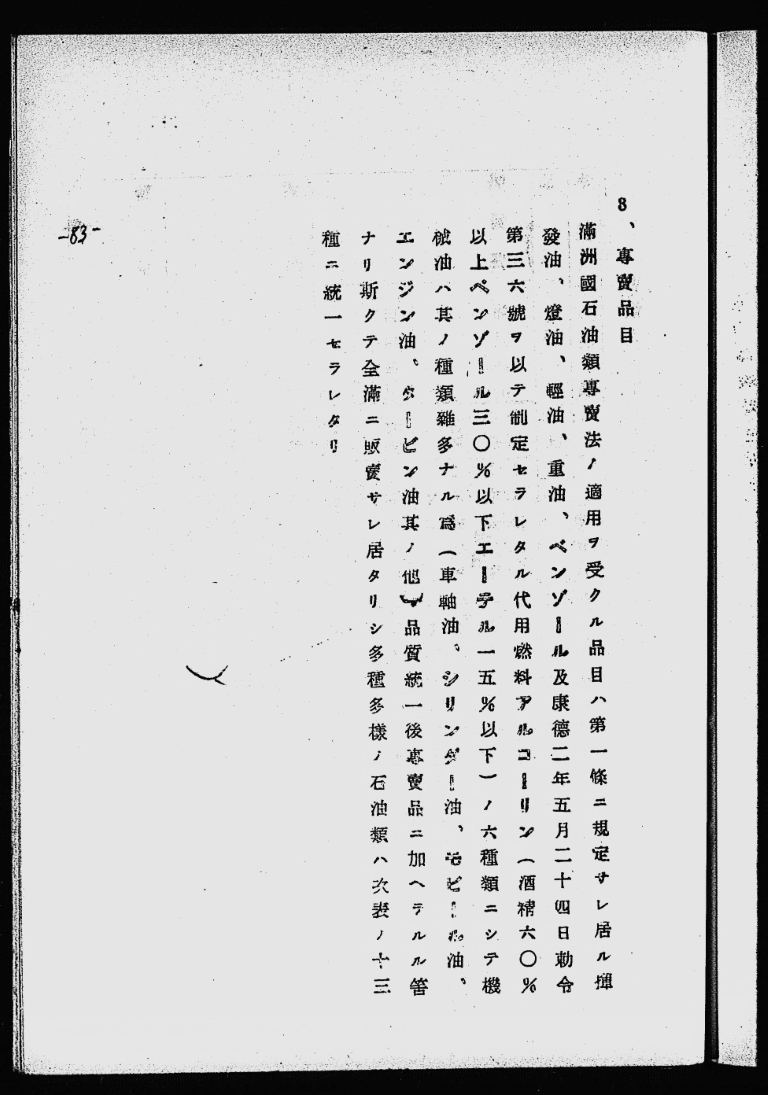 8、專賣品目
滿洲國石油類專賣法ノ適用ヲ受クル品目ハ第一條ニ規定サレ居ル揮
發油、燈油、輕油、重油、ベンゾール及康德二年五月二十四日勅令
第三六號ヲ以テ制定セラレタル代用燃料アルコーリン（酒精六〇％
以上ベンゾール三〇％以下エーテル一五％以下）ノ六種類ニシテ機
械油ハ其ノ種類雜多ナル爲（車軸油、シリンダー油、モビール油、
エンジン油、タービン油其ノ他）品質統一後專賣品ニ加ヘラルル筈
ナリ斯クテ全滿ニ販賣サレ居タリシ多種多樣ノ石油類ハ次表ノ十三
種ニ統一セラレタリ
-83-